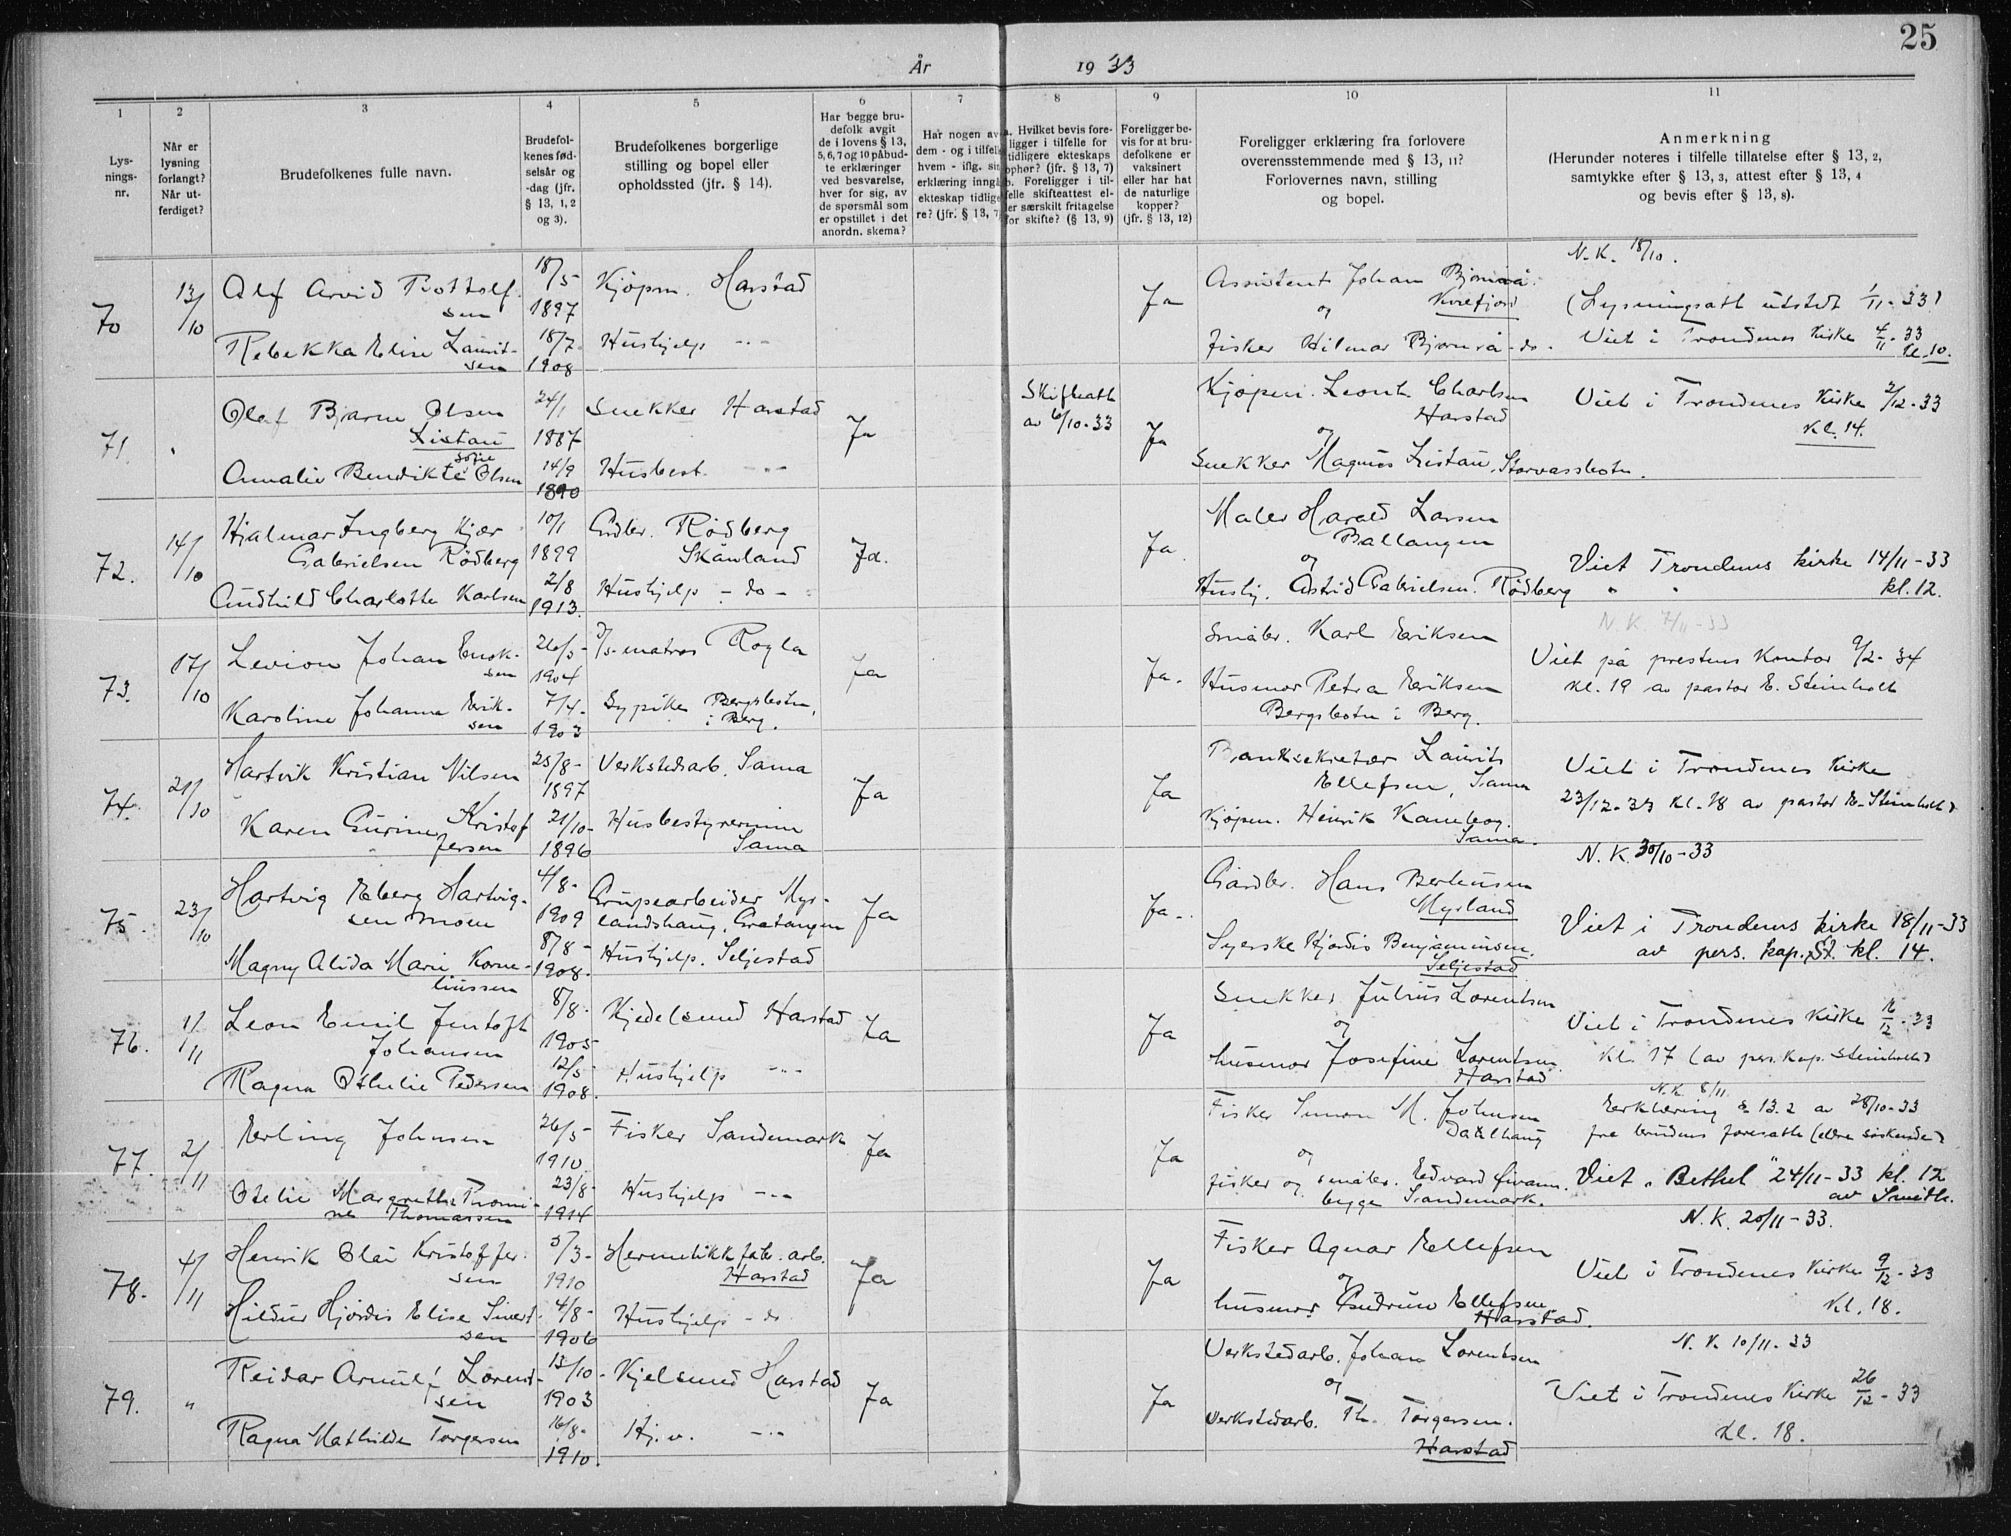 25
År 1933
1 2 3 4 5 6 7 8 9 10 11
Lys-
nings-
nr.
Når er
lysning
forlangt?
Når ut-
ferdiget?
Brudefolkenes fulle navn.
Brudefol-
kenes fød-
selsår og
-dag (jfr.
§ 13, 1, 2
og 3).
Brudefolkenes borgerlige
stilling og bopel eller
opholdssted (jfr. § 14).
Har begge bru-
defolk avgit
de i lovens § 13,
5, 6, 7 og 10 påbud-
te erklæringer
ved besvarelse,
hver for sig, av
de spørsmål som
er opstillet i det
anordn. skema?
Har nogen av
dem - og i tilfelle
hvem - iflg. sin
erklæring inngå
ekteskap tidlige
re? (jfr. § 13, 7)
a. Hvilket bevis fore-
ligger i tilfelle for
tidligere ekteskaps
ophør? (jfr. § 13, 7)
b. Foreligger i til-
felle skifteattest el-
ler særskilt fritagelse
for skifte? (§ 13, 9)
Foreligger be-
vis for at bru-
defolkene er
vaksinert
eller har hat
de naturlige
kopper?
(jfr. § 13, 12)
Foreligger erklæring fra forlovere
overensstemmende med § 13, 11?
Forlovernes navn, stilling
og bopel.
Anmerkning
(Herunder noteres i tilfelle tillatelse efter § 13, 2,
samtykke efter § 13, 3, attest efter § 13, 4
og bevis efter § 13, 8).
70 13/10 Alf Arvid Rottolf-
sen
18/5 1897
Kjøpm. Harstad
Rebekka Elise Laurit-
sen
18/7 1908
Hushjelp -"-
Ja
Assistent Johan Bjørnrå
Kvæfjord
og
Fisker Hilmar Bjørnrå - do.
N.K. 18/10.
(Lysningsatt utstedt 1/11-33)
Viet i Trondenes Kirke 4/11-33
Kl. 10.
71. "
Olaf Bjarne Olsen
Listau
24/1 1887
Snekker Harstad
Amalie Bendikte Sofie Olsen
14/9 1890
Husbest. -"-
Ja
Skifteatt.
av 6/10-33
Ja
Kjøpm. Leonh. Charlsen
Harstad
og
Snekker Magnus Listau, Storvassbotn.
Viet i Trondenes Kirke 2/12-33
Kl. 14.
72. 14/10
Hjalmar Ingberg Kjær
Gabrielsen Rødberg
10/1 1899
Grdbr. Rødberg
Skånland
Audhild Charlotte Karlsen
2/8 1913.
Hushjelp - do -
Ja.
Ja.
Maler Harald Larsen
Ballangen
og
Hushj. Astrid Gabrielsen. Rødberg
Viet Trondenes kirke 14/11-33
kl. 12.
73. 17/10
Levion Johan Enok-
sen
26/5- 1904
D/s-matros Rogla
Karoline Johanna Erik-
sen
7/4- 1903
Sypike Bergsbotn,
i Berg.
Ja
Ja.
Småbr. Karl Eriksen
Husmor Petra Eriksen
Bergsbotn i Berg.
N.K. 7/11-33
Viet på prestens Kontor 9/2-34
kl. 19 av pastor E. Steinholt
74. 21/10
Hartvik Kristian Nilsen
25/8- 1897
Verkstedarb. Sama
Karen Gurine Kristof
fersen
21/10- 1896
Husbestyrerinne
Sama
Ja
Ja
Banksekretær Laurits
Ellefsen, Sama
Kjøpm. Henrik Kanebog.
Sama.
Viet i Trondenes Kirke
23/12-33 kl. 18 av pastor E. Steinholt
75. 23/10
Hartvig Eberg Hartvig-
sen Moen
4/8- 1909
Grupearbeider Myr-
landshaug, Gratangen
Magny Alida Marie Korne-
liussen
8/8- 1908.
Hushjelp. Seljestad
Ja
Ja..
Gårdbr. Hans Berteusen
Myrland
Syerske Hjørdis Benjaminsen.
Seljestad
N.K. 30/10-33
Viet i Trondenes kirke 18/11-33
av pers. kap. St. kl. 14.
76. 1/11
Leon Emil Jentoft
Johansen
8/8- 1905
Kjedelsmed Harstad
Ragna Othelie Pedersen
12/5- 1908.
Hushjelp -"-
Ja
Ja
Snekker Julius Lorentsen
og
husmor Josefine Lorentsen
Harstad
Viet i Trondenes Kirke 16/12-33
Kl. 17 (av pers.kap. Steinholt)
77. 2/11
Erling Johnsen
26/5- 1910.
Fisker Sandemark
Otelie Margrethe Thomi-
ne Thomassen
23/8- 1914
Hushjelp -"-
Ja
Ja
Fisker Simon M. Johnsen
Dalelhaug
og
fisker og småbr. Edvard
bygge Sandemark.
N.K. 8/11
Erklæring § 13.2 av 28/10-33
fra brudens foresatte (eldre søskende)
Viet i "Bethel" 24/11-33 kl. 12
av Smith.
78. 4/11
Henrik Olai Kristoffer-
sen
5/3- 1910
Hermetikkfabr. arb.
Harstad
Hildur Hjørdis Elise Sivert-
sen
4/8- 1906
Hushjelp - do
Ja
Ja
Fisker Agnar Ellefsen
og
husmor Gudrun Ellefsen
Harstad.
N.K. 20/11-33.
Viet i Trondenes Kirke 9/12-33
Kl. 18.
79. "
Reidar Arnulf Lorent-
sen
13/10- 1903
Kjelsmed Harstad
Ragna Mathilde Torgersen
16/8- 1910.
Hj.v. -"-
Ja
Ja
Verkstedarb. Johan Lorentsen
og
Verkstedarb. Th. Torgersen.
Harstad
N.K. 10/11-33
Viet i Trondenes Kirke 26/12-33
Kl. 18.